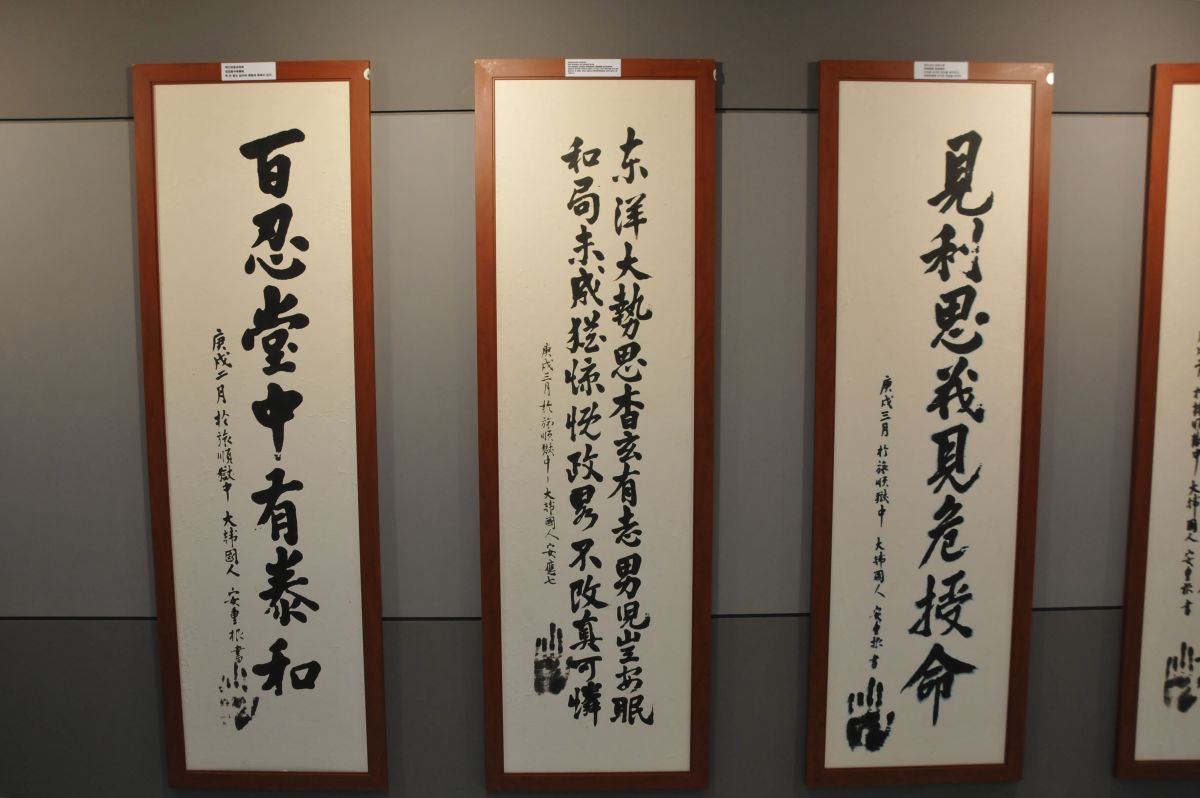 百忍堂中有泰和
庚戌二月 於旅順獄中 大韓國人 安重根書
東洋大勢思杳玄有志男児豈安眠
和局未成猶慷慨政畧不改真可憐
庚戌三月 於旅順獄中 大韓國人 安應七
見利思義見危授命
庚戌三月 於旅順獄中 大韓國人 安重根書
於旅順獄中 大韓國人 安重根書